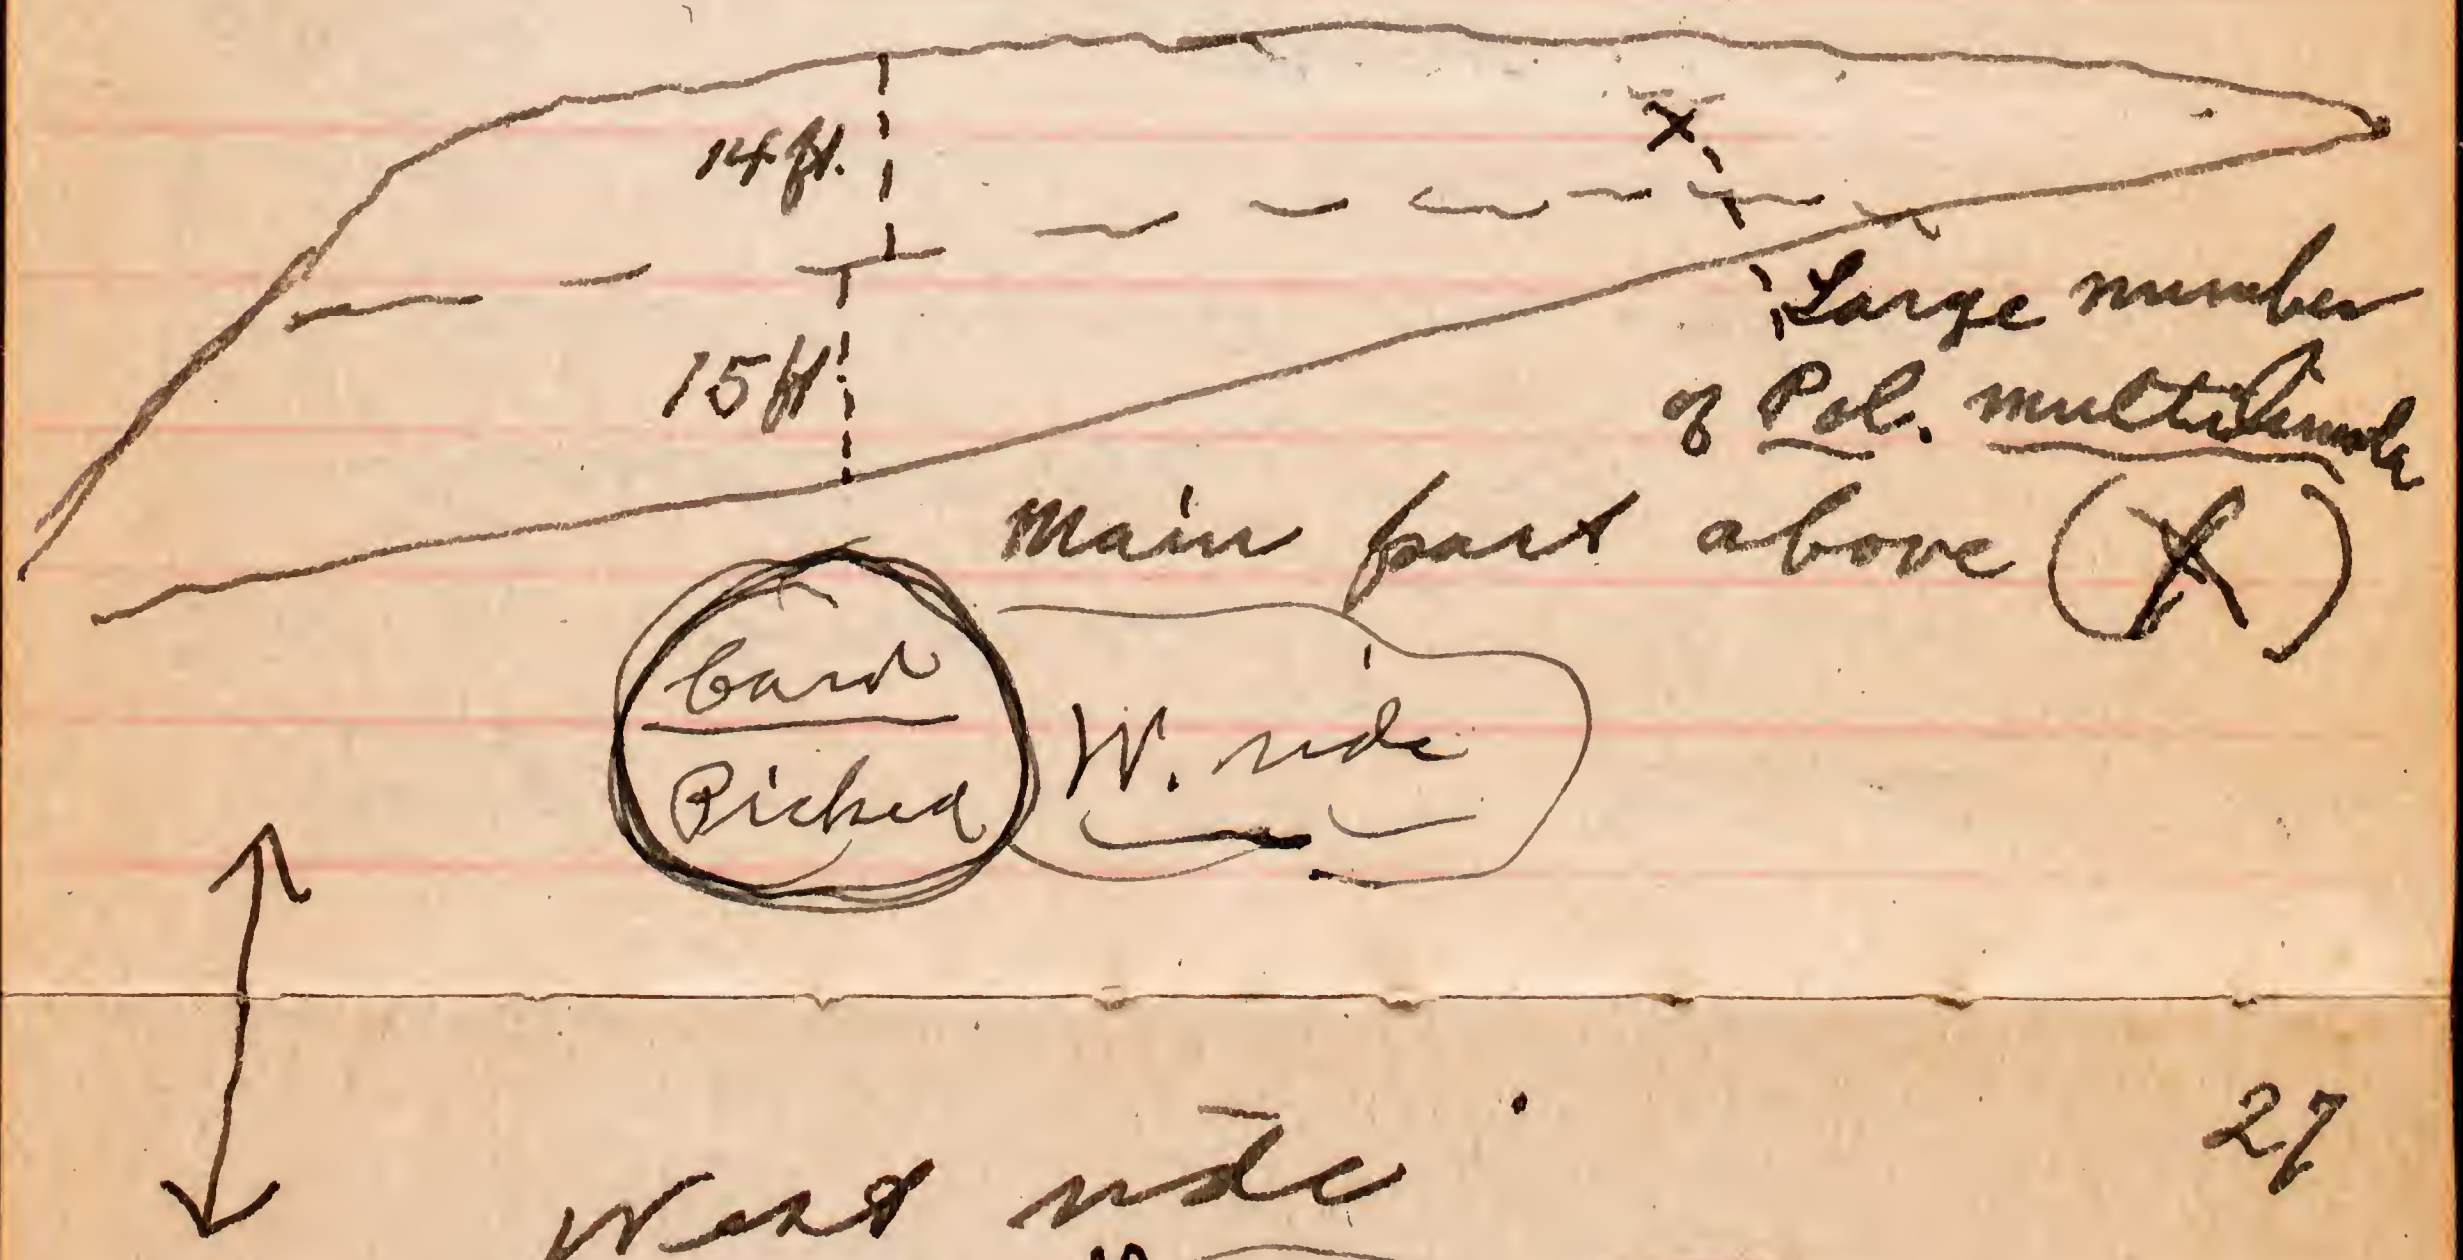 14 ft.
X
15 ft.
Large number
of Pol. multilineata
Main part above (X)
Card
Picked
W. side
27
West side